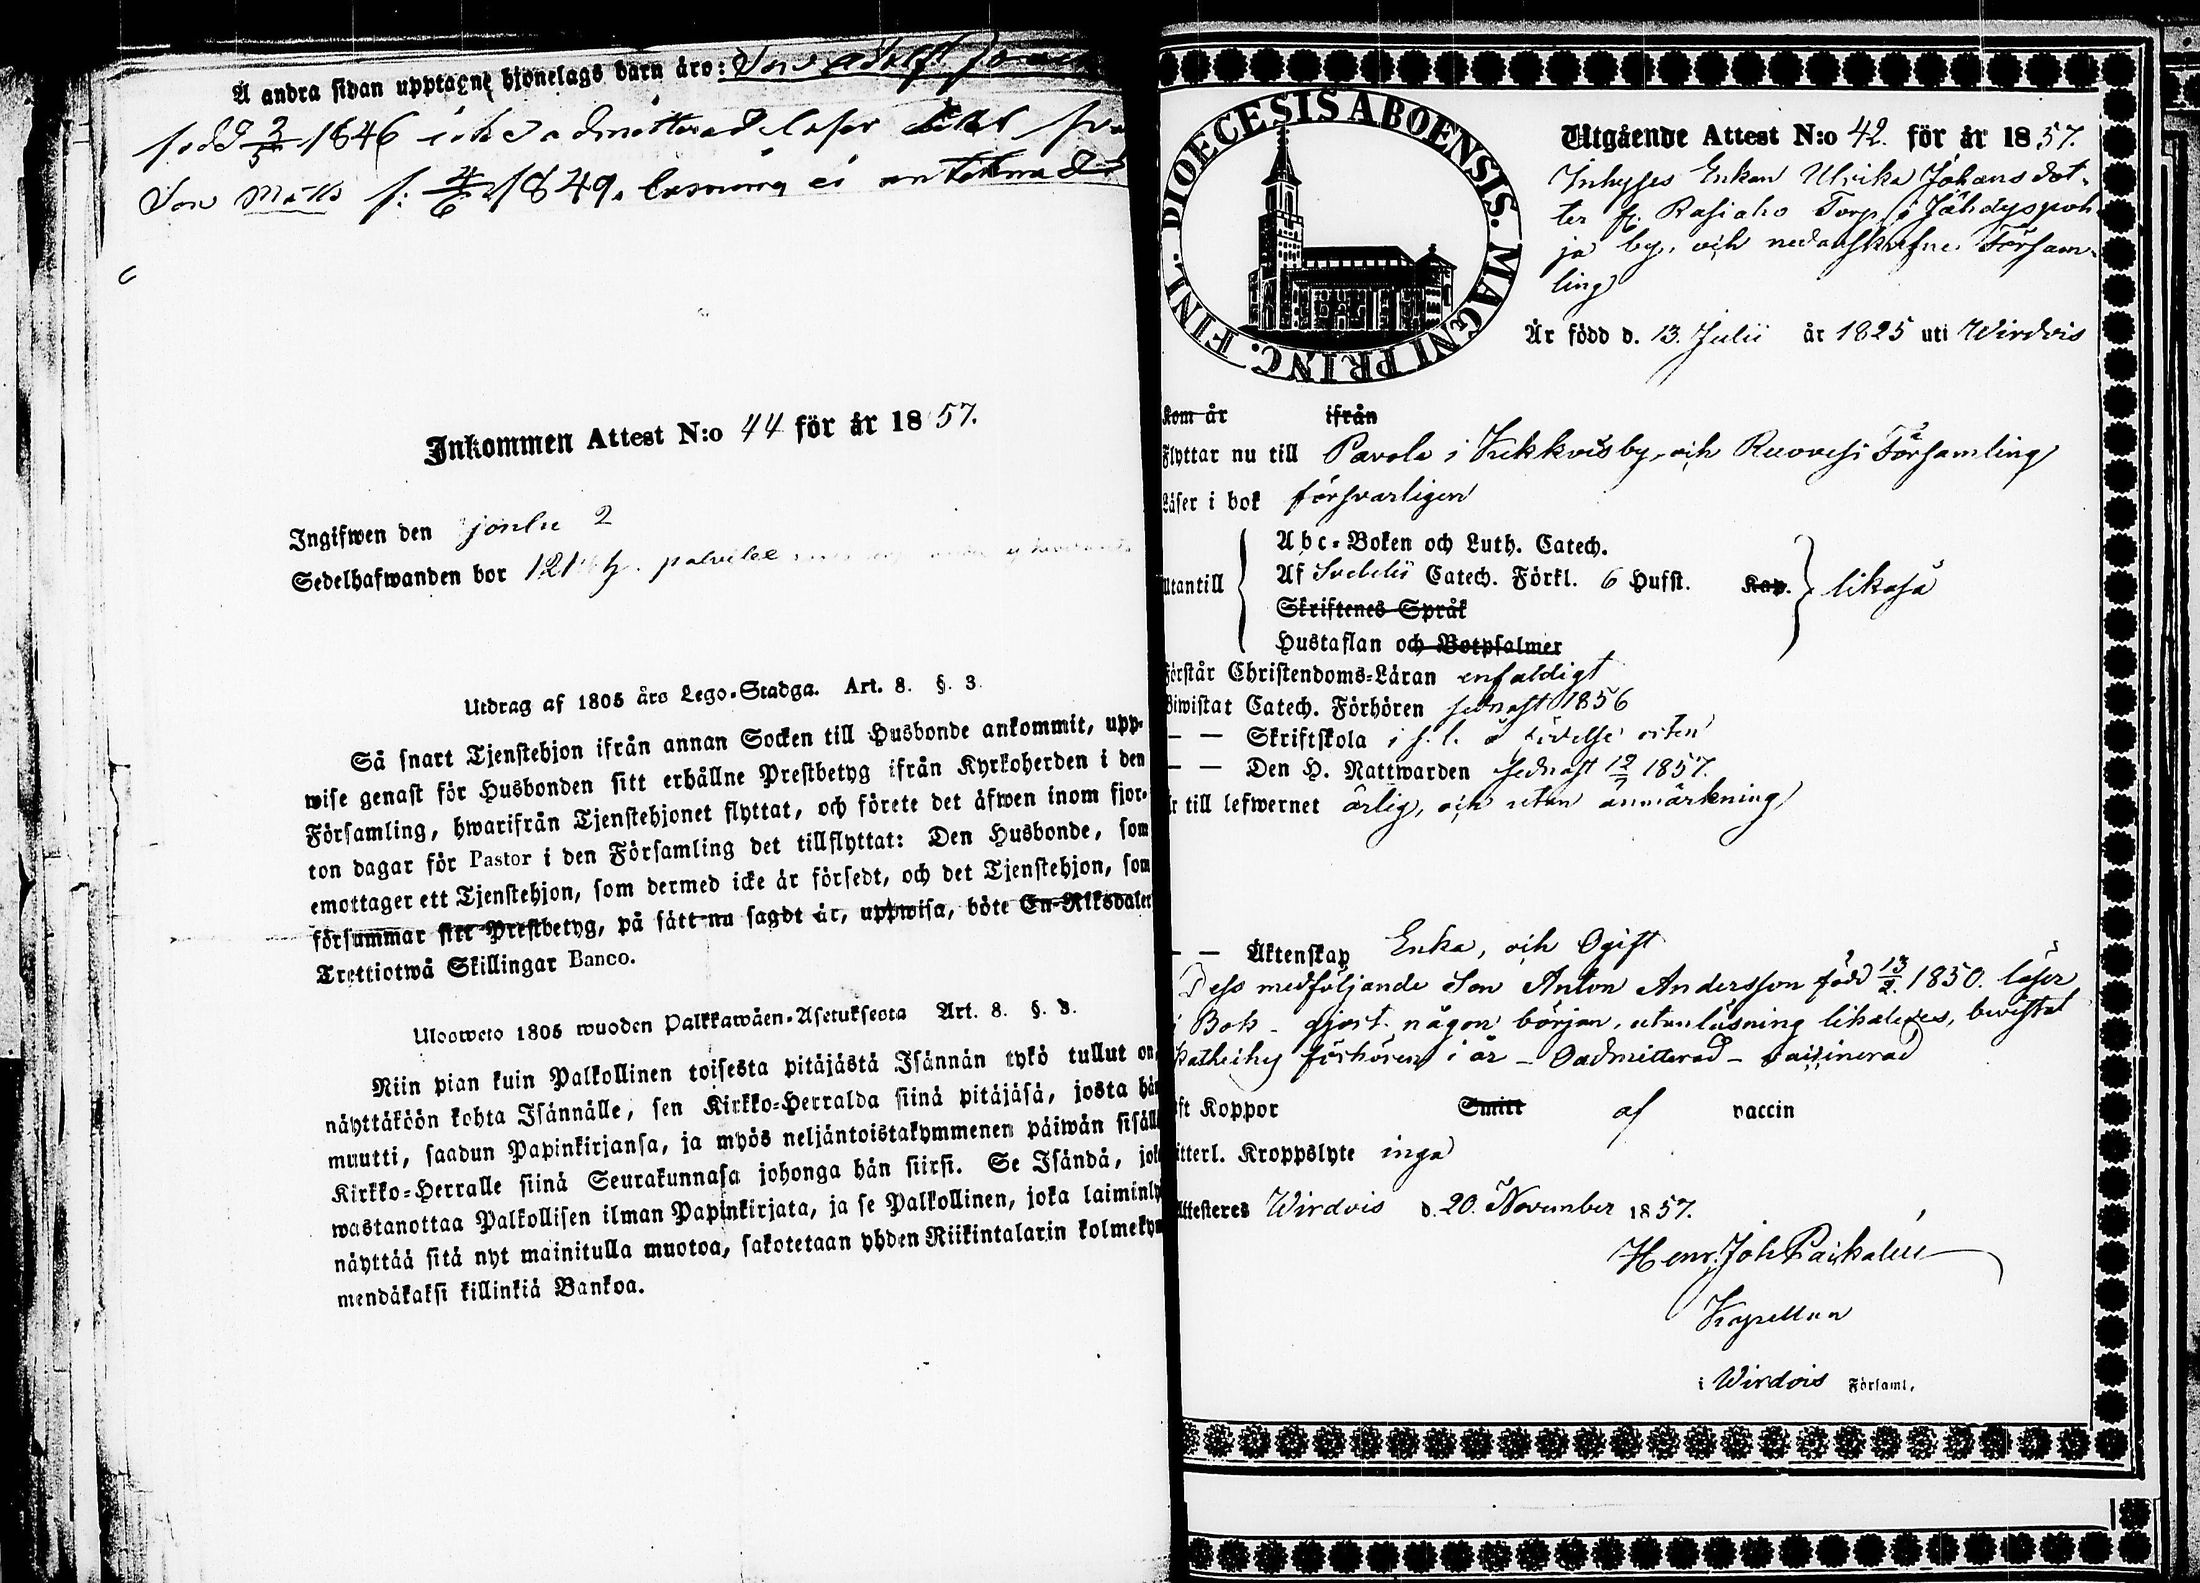 Å andra sidan upptagne hjonelags barn äro: Son Adolf
född 2/5 1846 icke admitterad läser
Son Matts f: 4/6 1849. läsning ej antecknad
Inkommen Attest N:o 44 för år 1857.
Ingifwen den
Sedelhafwanden bor
Utdrag af 1805 års Lego-Stadga. Art. 8. §. 3.
Så snart Tjenstehjon ifrån annan Socken till Husbonde ankommit, upp-
wise genast för Husbonden sitt erhållne Prestbetyg ifrån Kyrkoherden i den
Församling, hwarifrån Tjenstehjonet flyttat, och förete det äfwen inom fjor-
ton dagar för Pastor i den Församling det tillflyttat: Den Husbonde, som
emottager ett Tjenstehjon, som dermed icke är försedt, och det Tjenstehjon, som
försummar sitt Prestbetyg, på sätt nu sagdt är, uppwisa, böte En Riksdaler
Trettiotwå Skillingar Banco.
Ulosweto 1805 wuoden Palkkawäen-Asetuksesta Art. 8. §. 3.
Niin pian kuin Palkollinen toisesta pitäjästä Isännän tykö tullut on,
näyttäköön kohta Isännälle, sen Kirkko-Herralda siinä pitäjäsä, josta hän
muutti, saadun Papinkirjansa, ja myös neljäntoistakymmenen päiwän sisäll
Kirkko-Herralle siinä Seurakunnasa johonga hän siirsi. Se Isändä, joka
wastanottaa Palkollisen ilman Papinkirjata, ja se Palkollinen, joka laiminly
näyttää sitä nyt mainitulla muotoa, sakotetaan yhden Riikintalarin kolmekym
mendäkaksi killinkiä Bankoa.
DIOECESIS ABOENSIS. MAGNI PRINC. FINL.
Utgående Attest N:o 42. för år 1857.
Inhyses Enkan Ulrika Johansdot-
ter fr. Rasiaho Torp i Jähdyspoh-
ja by, och nedanskrefne Försam-
ling
Är född d. 13. Julii år 1825 uti Wirdois
Kom år ifrån
Flyttar nu till Pavola i Kekkois by, och Ruovesi Församling
Läser i bok försvarligen
Abc-Boken och Luth. Catech.
Utantill Af Svebelii Catech. Förkl. 6 Hufst. Kap. likaså
Skriftenes Språk
Hustaflan och Botpsalmer
Förstår Christendoms-Läran enfaldigt
Biwistat Catech. Förhören sednast 1856
— — Skriftskola i
— — Den H. Nattwarden sednast 12/7 1857.
Är till lefwernet ärlig, och utan anmärkning
— — Äktenskap Enka, och Ogift
Dess medföljande Son Anton Andersson född 13/2 1850. läser
i Bok – gjort någon början, utanläsning likaledes, bevistat
Kathechis förhören i år – Oadmitterad – vaccinerad
Haft Koppor Smitt af vaccin
Witterl. Kroppslyte inga
Attesteres Wirdois d. 20. November 1857.
Henr. Joh
Kapellan
i Wirdois Församl.